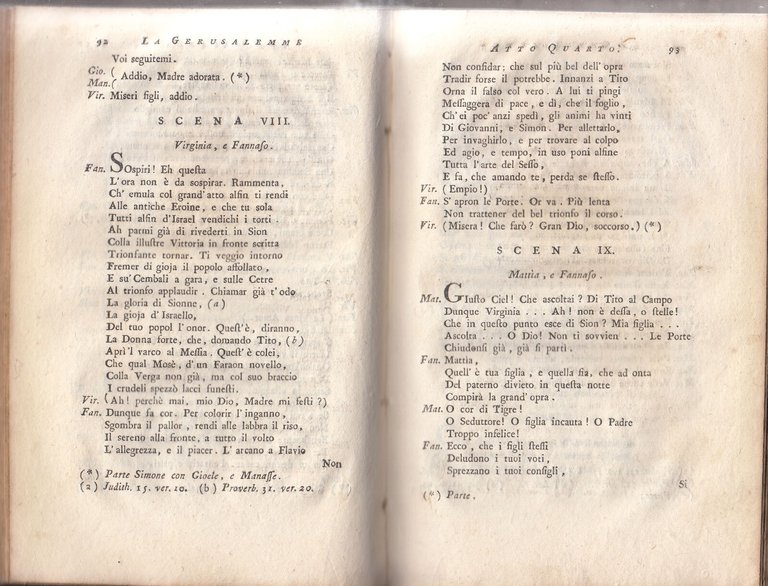 92 LA GERUSALEMME
Voi seguitemi.
Gio. (
Man. ( Addio, Madre adorata. (*)
Vir. Miseri figli, addio.
SCENA VIII.
Virginia, e Fannaſo.
Fan. SOſpiri! Eh queſta
L'ora non è da sospirar. Rammenta,
Ch' emula col grand'atto alfin ti rendi
Alle antiche Eroine, e che tu sola
Tutti alfin d'Israel vendichi i torti.
Ah parmi già di rivederti in Sion
Colla illuſtre Vittoria in fronte scritta
Trionfante tornar. Ti veggio intorno
Fremer di gioja il popolo affollato,
E su' Cembali a gara, e sulle Cetre
Al trionfo applaudir. Chiamar già t'odo
La gloria di Sionne, (a)
La gioja d'Israello,
Del tuo popol l'onor. Queſt'è, diranno,
La Donna forte, che, domando Tito, (b)
Aprì'l varco al Meſſia. Queſt'è colei,
Che qual Mosè, d'un Faraon novello,
Colla Verga non già, ma col suo braccio
I crudeli spezzò lacci funeſti.
Vir. (Ah! perchè mai, mio Dio, Madre mi feſti?)
Fan. Dunque fa cor. Per colorir l'inganno,
Sgombra il pallor, rendi alle labbra il riso,
Il sereno alla fronte, a tutto il volto
L'allegrezza, e il piacer. L'arcano a Flavio
Non
(*) Parte Simone con Gioele, e Manaſſe.
(a) Judith. 15. ver. 10. (b) Proverb. 31. ver. 20.
ATTO QUARTO. 93
Non confidar: che sul più bel dell'opra
Tradir forse il potrebbe. Innanzi a Tito
Orna il falso col vero. A lui ti pingi
Meſſaggera di pace, e dì, che il foglio,
Ch'ei poc'anzi spedì, gli animi ha vinti
Di Giovanni, e Simon. Per allettarlo,
Per invaghirlo, e per trovare al colpo
Ed agio, e tempo, in uso poni alfine
Tutta l'arte del Seſſo,
E fa, che amando te, perda se ſteſſo.
Vir. (Empio!)
Fan. S'apron le Porte. Or va. Più lenta
Non trattener del bel trionfo il corso.
Vir. (Misera! Che farò? Gran Dio, soccorso.) (*)
SCENA IX.
Mattìa, e Fannaſo.
Mat. GIuſto Ciel! Che ascoltai? Di Tito al Campo
Dunque Virginia . . . Ah! non è deſſa, o stelle!
Che in queſto punto esce di Sion? Mia figlia . . .
Ascolta . . . O Dio! Non ti sovvien . . . Le Porte
Chiudonsi già, già si partì.
Fan. Mattìa,
Quell'è tua figlia, e quella sia, che ad onta
Del paterno divieto in queſta notte
Compirà la grand'opra.
Mat. O cor di Tigre!
O Seduttore! O figlia incauta! O Padre
Troppo infelice!
Fan. Ecco, che i figli ſteſſi
Deludono i tuoi voti,
Sprezzano i tuoi consigli,
Sì
(*) Parte.